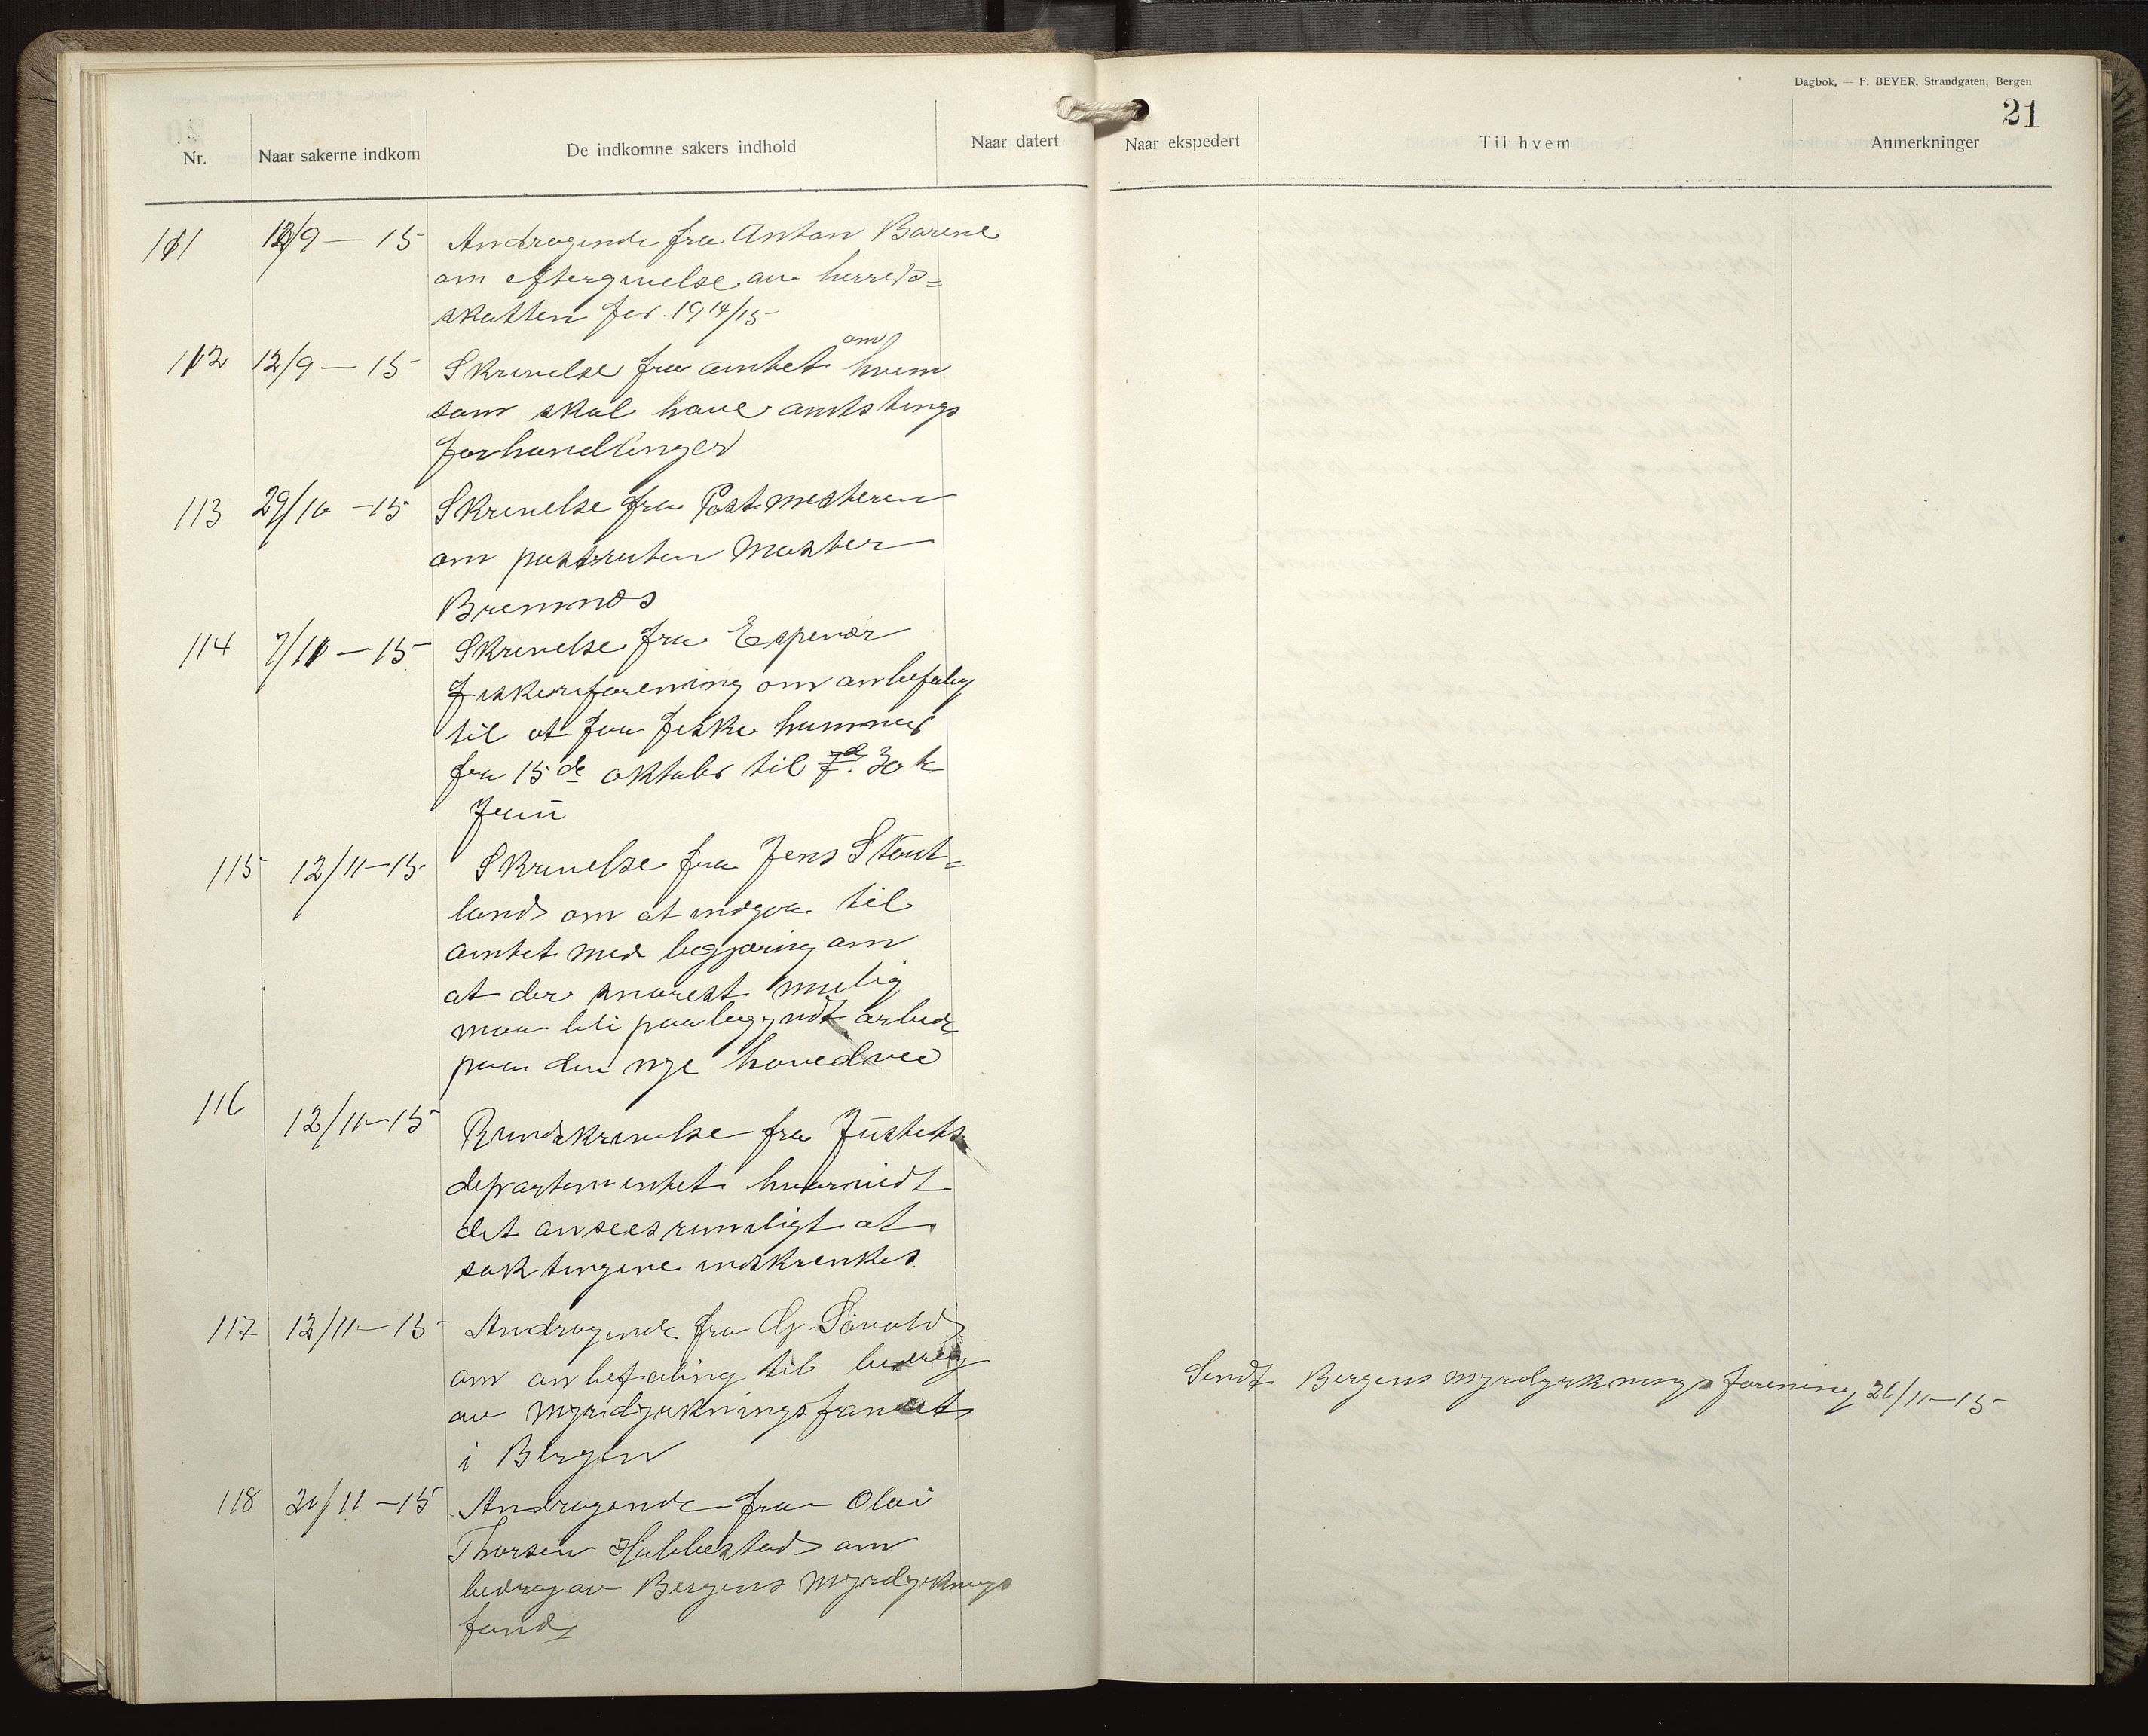 Dagbok. — F. BEYER, Strandgaten, Bergen
21
Nr. Naar sakerne indkom De indkomne sakers indhold Naar datert Naar ekspedert Til hvem Anmerkninger
111 12/9 — 15 Andragende fra Anton Barane
om eftergivelse av herreds=
skatten for 1914/15
112 12/9 — 15 Skrivelse fra amtet om hvem
som skal have amtstings
forhandlinger
113 29/10 — 15 Skrivelse fra Postmesteren
om postruten Moster
Bremnes
114 7/11 — 15 Skrivelse fra Espevær
fiskeriforening om anbefaling
til at faa fiske hummer
fra 15de oktober til 30te
Juni
115 12/11 — 15 Skrivelse fra Jens Stout=
land om at indgaa til
amtet med begjæring om
at der snarest mulig
maa bli paabegyndt arbeide
paa den nye hovedvei
116 12/11 — 15 Rundskrivelse fra Justits
departementet hvormidt
det ansees rimeligt at
saktingene indskrenkes.
117 12/11 — 15 Andragende fra
om anbefaling til bidrag
av myrdyrkningsfondet
i Bergen
Sendt Bergens myrdyrkningsforening 26/11 — 15
118 20/11 — 15 Andragende fra Olai
Thorsen Habbestad om
bidrag av Bergens Myrdyrknings
fond